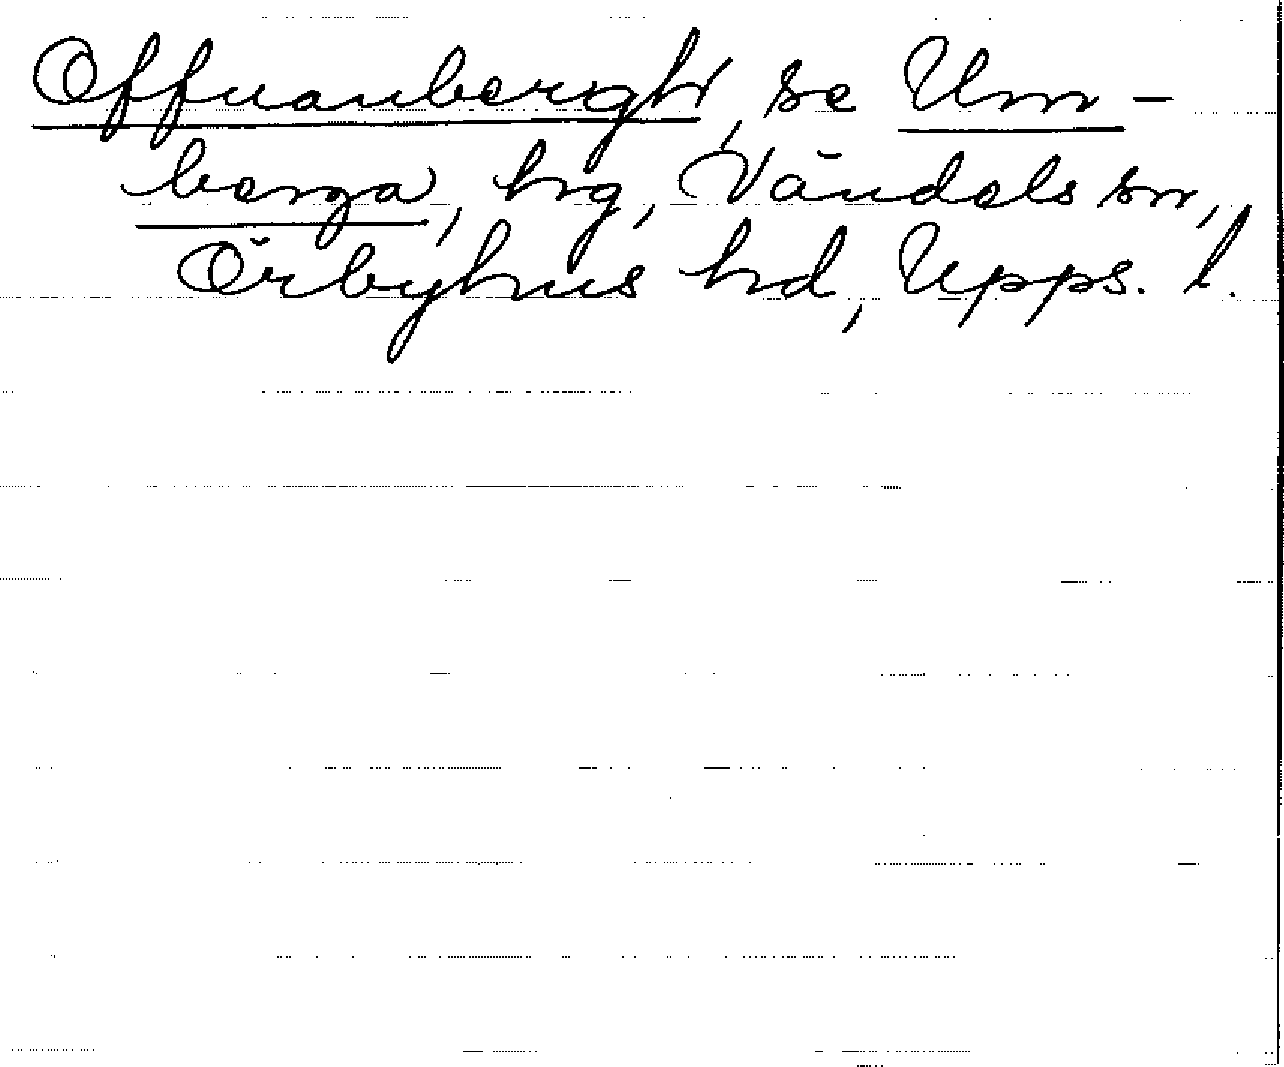 Offuanbergh, se Um-
berga, hg, Vändels sn,
Örbyhus hd, Upps. l.